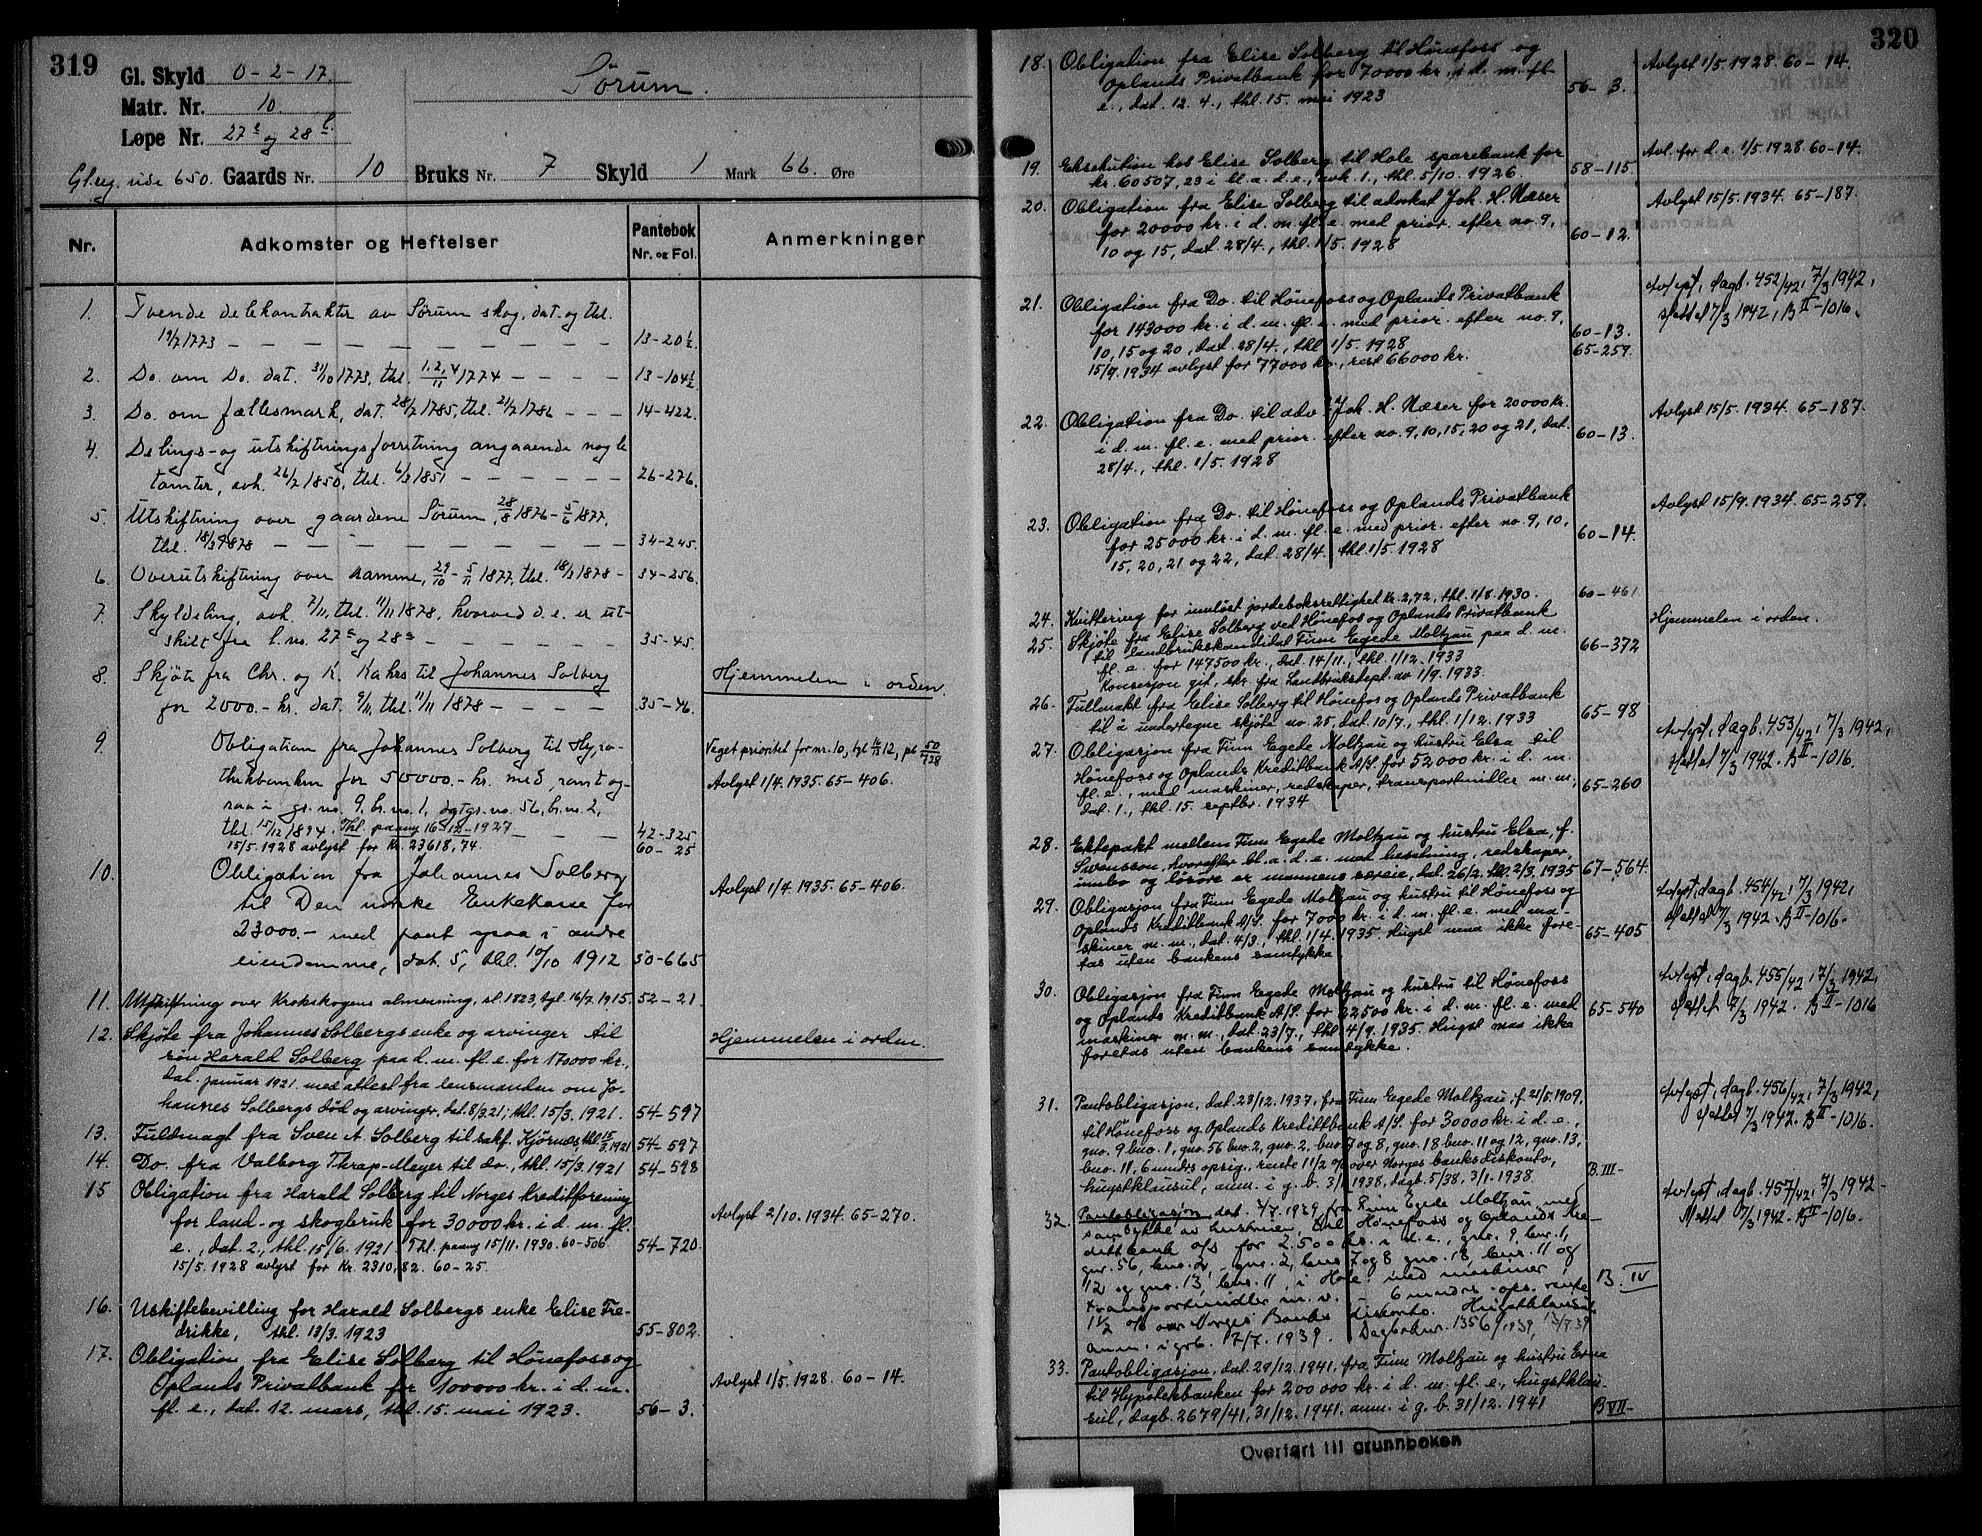 319
Gl. Skyld 0-2-17.
Matr. Nr. 10.
Løpe Nr. 27 e og 28 e.
Sørum.
Gl. reg. side 650. Gaards Nr. 10 Bruks Nr. 7 Skyld 1 Mark 66. Øre
Nr. Adkomster og Heftelser Pantebok Nr. og Fol. Anmerkninger
1. Tvende delekontrakter av Sørum skog, dat. og thl.
19/7 1773 — 13-20½.
2. Do. om Do. dat. 31/10 1773, thl. 1, 2, 4/11 1774 — 13-104½
3. Do. om fællesmark, dat. 28/7 1785, thl. 21/2 1786 — 14-422.
4. Delings- og utskiftningsforretning angaaende nogle
tomter, avh. 26/7 1850, thl. 6/3 1851 — 26-276.
5. Utskiftning over gaardene Sørum 28/8 1876 - 5/6 1877,
thl. 18/3 1878 — 34-245.
6. Overutskiftning over samme, 29/10 - 5/11 1877, thl. 18/3 1878 - 34-256.
7. Skyldeling, avh. 7/11, thl. 11/11 1878, hvorved d. e. er ut-
skilt fra l. no. 27 a og 28 a — 35-45.
8. Skjøte fra Chr. og K. Kahrs til Johannes Solberg
for 2000.- kr. dat. 9/11, thl. 11/11 1878 — 35-46.
Hjemmelen i orden.
9. Obligation fra Johannes Solberg til Hypo-
thekbanken for 50000.- kr. med pant og-
saa i gr. no. 9, br. no. 1, og gr. no. 56, br. n. 2,
thl. 15/12 1894. Thl. paany 16-12-1927 — 42-325
15/5. 1928 avlyst for Kr. 23618,74. 60-25
Veget prioritet for nr. 10, tgl 12, pb 50/728
Avlyst 1/4. 1935. 65-406.
10. Obligation fra Johannes Solberg
til Den norske Enkekasse for
23000.- med pant ogsaa i andre
eiendomme, dat. 5, thl. 10/10 1912 50-665
Avlyst 1/4. 1935. 65-406.
11. Utskiftning over Krokskogens almenning, sl. 1823, tgl. 16/7. 1915. 52-21.
12. Skjøte fra Johannes Solbergs enke og arvinger til
søn Harald Solberg paa d. m. fl. e. for 170000 kr.,
dat. januar 1921. med attest fra lensmanden om Jo-
hannes Solbergs død og arvinger, dat. 8/3. 21; thl. 15/3. 1921. 54-597
Hjemmelen i orden.
13. Fuldmagt fra Sven A. Solberg til sakf. Kjørnæs, thl 15/3. 1921 54-597
14. Do. fra Valborg Thrap-Meyer til do., thl. 15/3. 1921 54-598
15 Obligation fra Harald Solberg til Norges Kreditforening
for land- og skogbruk for 30000 kr. i d. m. fl.
e., dat. 2., thl. 15/6. 1921. Thl. paany 15/11. 1930. 60-506 54-720.
15/5. 1928 avlyst for Kr. 2310,82. 60-25.
Avlyst 2/10. 1934. 65-270.
16. Uskiftebevilling for Harald Solbergs enke Elise Fre-
drikke, thl. 13/3. 1923 55-802.
17. Obligation fra Elise Solberg til Hønefoss og
Oplands Privatbank for 100000 kr. i d. m.
fl. e., dat. 12. mars, thl. 15. mai 1923. 56-3.
Avlyst 1/5. 1928. 60-14.
320
18. Obligation fra Elise Solberg til Hønefoss og
Oplands Privatbank for 70000 kr. i d. m. fl.
e., dat. 12. 4., thl. 15. mai 1923 56-3.
Avlyst 1/5. 1928. 60-14.
19. Eksekution hos Elise Solberg til Hole sparebank for
kr. 60507,23 i bl. a. d. e., avh. 1., thl. 5/10. 1926 58-115.
Avl. for d. e. 1/5. 1928. 60-14.
20. Obligation fra Elise Solberg til advokat Joh. H. Næser
for 20000 kr. i d. m. fl. e. med prior. efter no. 9,
10 og 15, dat. 28/4., thl. 1/5. 1928 60-12.
Avlyst 15/5. 1934. 65-187.
21. Obligation fra Do. til Hønefoss og Oplands Privatbank
for 143000 kr. i d. m. fl. e. med prior. efter no. 9,
10, 15 og 20, dat. 28/4., thl. 1/5. 1928 60-13.
15/9. 1934 avlyst for 77000 kr., rest 66000 kr. 65-259.
Avlyst, dagb. 452/42, 7/3 1942,
slettet 7/3 1942, B II-1016.
22. Obligation fra Do. til adv. Joh. H. Næser for 20000 kr.
i d. m. fl. e. med prior. efter no. 9, 10, 15, 20 og 21, dat.
28/4., thl. 1/5. 1928 60-13.
Avlyst 15/5. 1934. 65-187.
23. Obligation fra Do. til Hønefoss og Oplands Privatbank
for 25000 kr. i d. m. fl. e. med prior. efter no. 9, 10,
15, 20, 21 og 22, dat. 28/4. thl. 1/5. 1928 60-14.
Avlyst 15/9. 1934. 65-259.
24. Kvittering for innløst jordeboksrettighet kr. 2,72, thl. 1/8. 1930. 60-461
25. Skjøte fra Elise Solberg ved Hønefos og Oplands Privatbank
til landbrukskandidat Finn Egede Moltzau paa d. m.
fl. e. for 147500 kr., dat. 14/11., thl. 1/12. 1933 66-372
Konsesjon git. skr. fra Landbruksdept. av 1/9. 1933.
Hjemmelen i orden.
26. Fullmakt fra Elise Solberg til Hønefos og Oplands Privatbank
til å undertegne skjøte no. 25, dat. 10/7., thl. 1/12. 1933 65-98
27. Obligasjon fra Finn Egede Moltzau og hustru Elsa til
Hønefoss og Oplands Kreditbank A/S. for 52000 kr. i d. m.
fl. e., med maskiner, redskaper, transportmidler m. m.,
dat. 1., thl. 15. septbr. 1934 65-260
Avlyst, dagb. 453/42, 7/3 1942,
slettet 7/3 1942. B II-1016.
28. Ektepakt mellem Finn Egede Moltzau og hustru Elsa, f.
Svensson, hvorefter bl. a. d. e. med besetning, redskaper,
innbo og løsøre er mannens særeie, dat. 26/2. thl. 2/3. 1935 67-564.
29. Obligasjon fra Finn Egede Moltzau og hustru til Hønefoss og
Oplands Kreditbank A/S. for 7000 kr. i d. m. fl. e. med ma-
skiner m. m., dat. 4/3., thl. 1/4. 1935. Hugst maa ikke fore-
tas uten bankens samtykke 65-405
Avlyst, dagb. 454/42, 7/3 1942,
slettet 7/3 1942. B II-1016.
30. Obligasjon fra Finn Egede Moltzau og hustru til Hønefoss
og Oplands Kreditbank A/S. for 22500 kr. i d. m. fl. e. med
maskiner m. m., dat. 23/7., thl. 4/9. 1935. Hugst maa ikke
foretas uten bankens samtykke. 65-540
Avlyst, dagb. 455/42, 7/3 1942,
slettet 7/3 1942. B II-1016
31. Pantobligasjon, dat. 23/12. 1937, fra Finn Egede Moltzau, f. 21/5. 1909,
til Hønefoss og Oplands Kredittbank A/S. for 30000 kr. i d. e.,
gno. 9 bno. 1, gno. 56 bno. 2, gno. 2, bno. 7 og 8, gno. 18 bno. 11 og 12, gno. 13,
bno. 11, 6 mndrs opsig., rente 1 1/2 % over Norges banks diskonto,
hugstklausul, anm. i g. b. 3/1 1938, dagb. 5/38, 3/1. 1938 B. III-
Avlyst, dagb. 456/42, 7/3 1942,
slettet 7/3 1942. B II-1016.
32. Pantobligasjon, dat. 4/7. 1939 fra Finn Egede Moltzau med
samtykke av hustruen, til Hønefoss og Oplands Kre-
dittbank a/s for 2500 kr. i d. e., gnr. 9, bnr. 1,
gnr. 56, bnr. 2, gnr. 2, bnr. 7 og 8 gnr. 18, bnr. 11 og
12 og gnr. 13, bnr. 11, i Hole, med maskiner,
transportmidler m. v. - 6 mndrs. ops. rente
1½ % over Norges Banks diskonto. Hugstklausul
anm. i grb. 17/7. 1939. Dagboknr. 1356/1939, 13/7 39 B. IV
Avlyst, dagb. 457/42, 7/3 1942-
Slettet 7/3 1942. B II-1016.
33. Pantobligasjon, dat. 29/12. 1941, fra Finn Moltzau og hustru Elsa
til Hypotekbanken for 200000 kr. i d. m. fl. e., hugstklau-
sul, dagb. 2679/41, 31/12. 1941. anm. i g. b. 31/12. 1941 B VII-
Overført til grunnboken